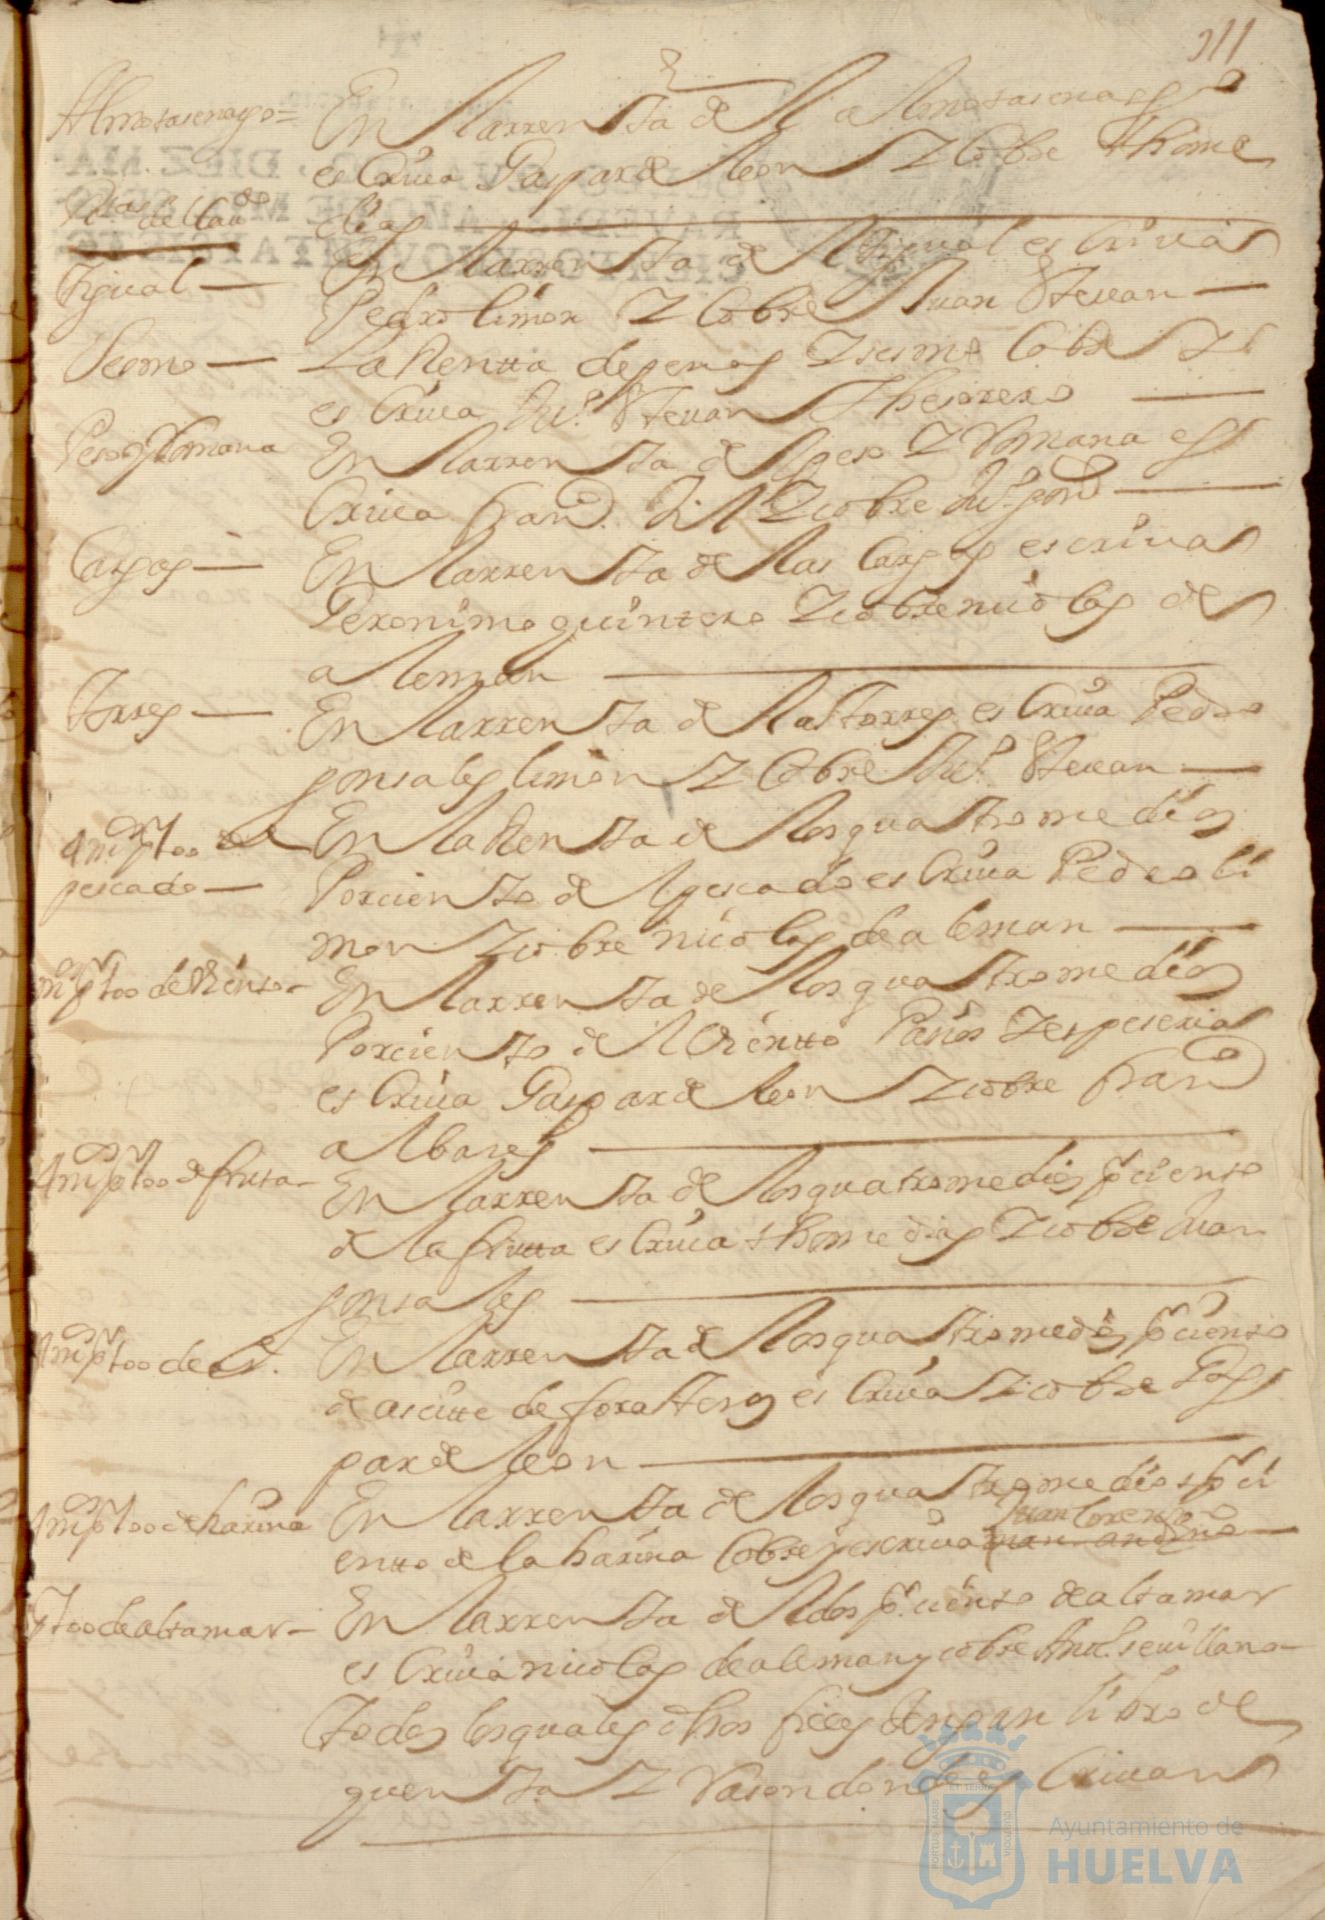 311
Almotasenasgo=
En la rrenta de la Almotasenasgo
escriua Gaspar de leon y cobre thome
dias
Figual
En la rrenta de el figual escriua
Pedro limon y cobre Juan Steuan
Sesmo
La Rentta de penas y sesmo cobre y
escriua Juº Steuan thesorero
Peso y Romana
En la rrenta de el peso y Romana es
criua fran.co y cobre Juº
Cargas
En la rrenta de las cargas escriua
Geronimo quintero y cobre nicolas de
aleman
Torres
En la rrenta de las torres escriua Pedro
gonsales limon y cobre Juº Steuan
4 m.os p.r too de el
pescado
En la Renta de los quatro medios
Porciento de el pescado escriua Pedro li
mon y cobre nicolas de aleman
m.os p.r too de Viento
En la rrenta de los quatro medios
Porciento de el Vientto Paños y espeseria
escriua Gaspar de leon y cobre fran.co
albares
4 m.os p.r too de fruta
En la rrenta de los quatro medios p.r ciento
de la frutta escriua thome dias y cobre Juan
gonsales
4 m.os p.r too de
En la rrenta de los quatro medios p.r ciento
de aseitte de forasteros escriua y cobre Gas
par de leon
4 m.os p.r too de harina
En la rrenta de los quatro medios p.r ci
Juan lorenso
entto de la harina cobre y escriua
p.r too de altamar
En la rrenta de el dos p.r ciento de altamar
escriua nicolas de aleman y cobre Ant.º seuillano
Todos los quales dhos fieles tengan libro de
quenta y Rason donde escriuan
PORTUS MARIS
ET TERRAE
CUSTODIA
Ayuntamiento de
HUELVA